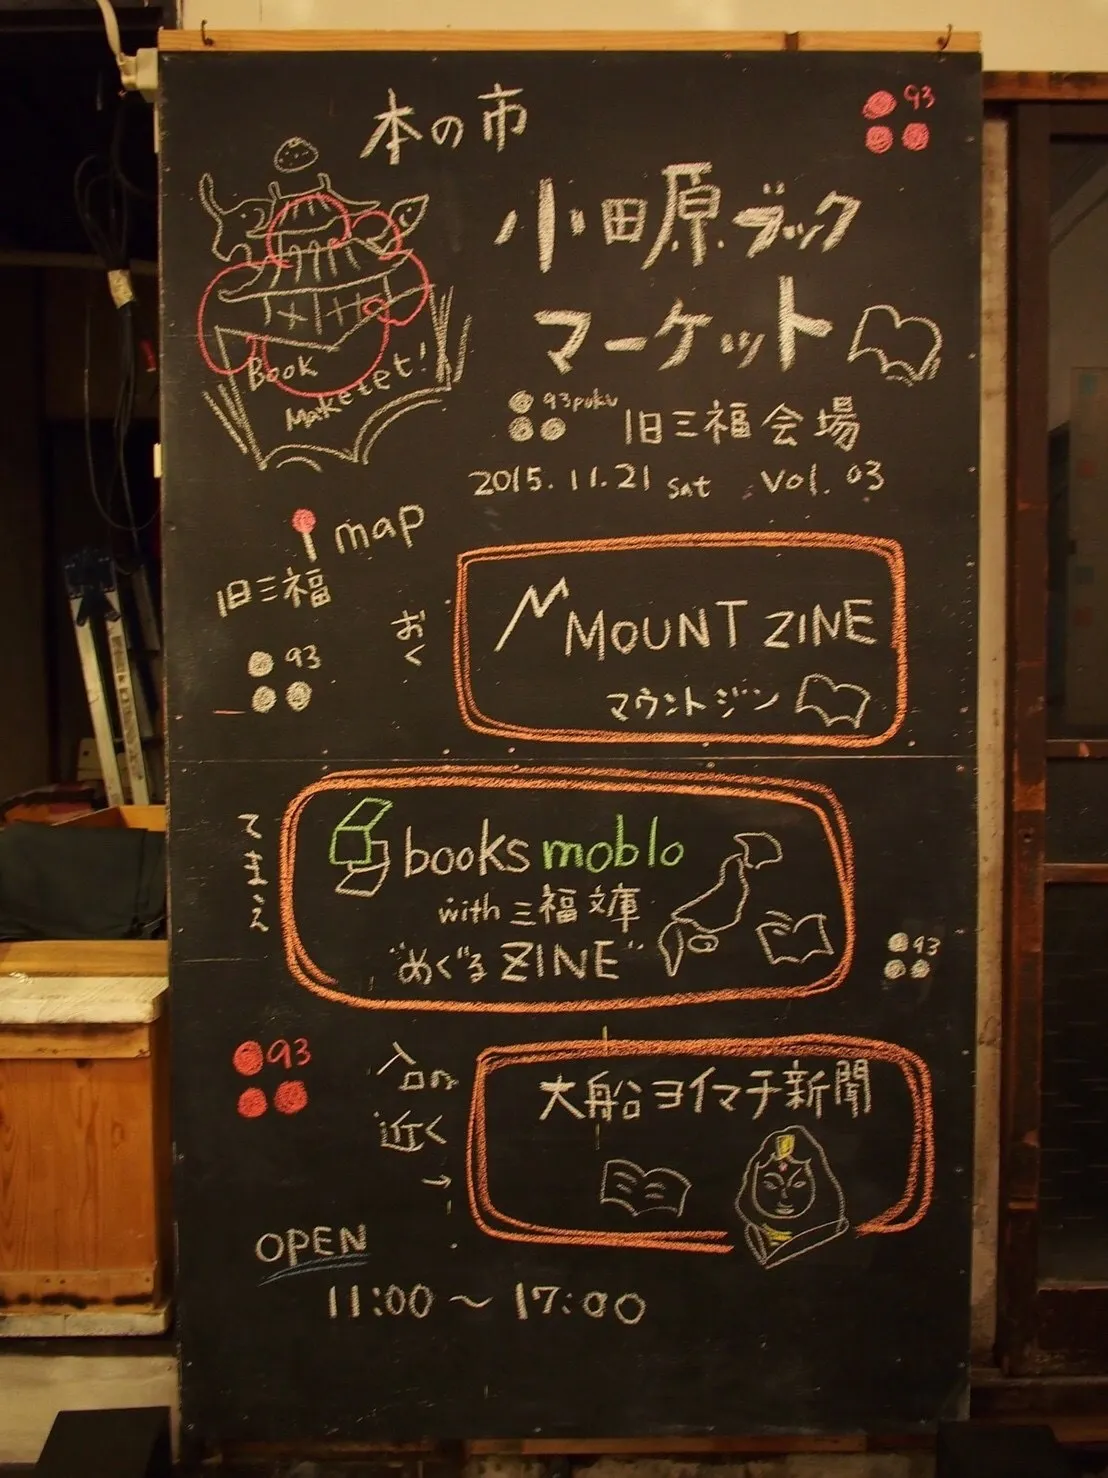 本の市
93
小田原ブック
マーケット
Book
Maketet!
93puku
旧三福会場
2015.11.21 sat vol. 03
map
旧三福
93
おく
MOUNT ZINE
マウントジン
てまえ
books moblo
with 三福文庫
"めぐるZINE"
93
93
入口の
近く
→
大船ヨイマチ新聞
OPEN
11:00～17:00